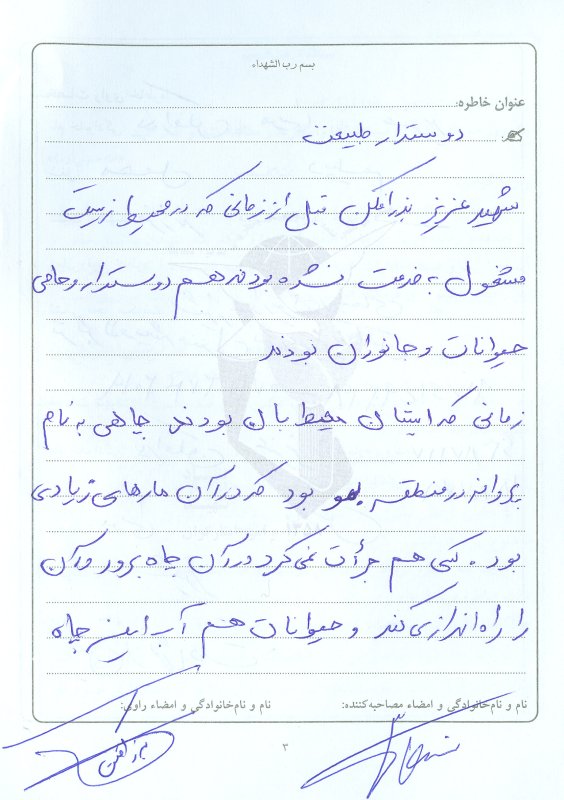 بسم رب الشهداء
عنوان خاطره:
دوستدار طبیعت
شهید عزیز بذرافکن قبل از زمانی که در محیط زیست
مشغول به خدمت نشده بودند هم دوستدار و حامی
حیوانات و جانوران بودند
زمانی که ایشان محیط بان بودند چاهی به نام
پروانه در منطقه بمو بود که در آن مارهای زیادی
بود. کسی هم جرأت نمی کرد در آن چاه برود و آن
را راه اندازی کند و حیوانات هم آب این چاه
نام و نام‌خانوادگی و امضاء مصاحبه‌کننده:
نام و نام‌خانوادگی و امضاء راوی:
۳